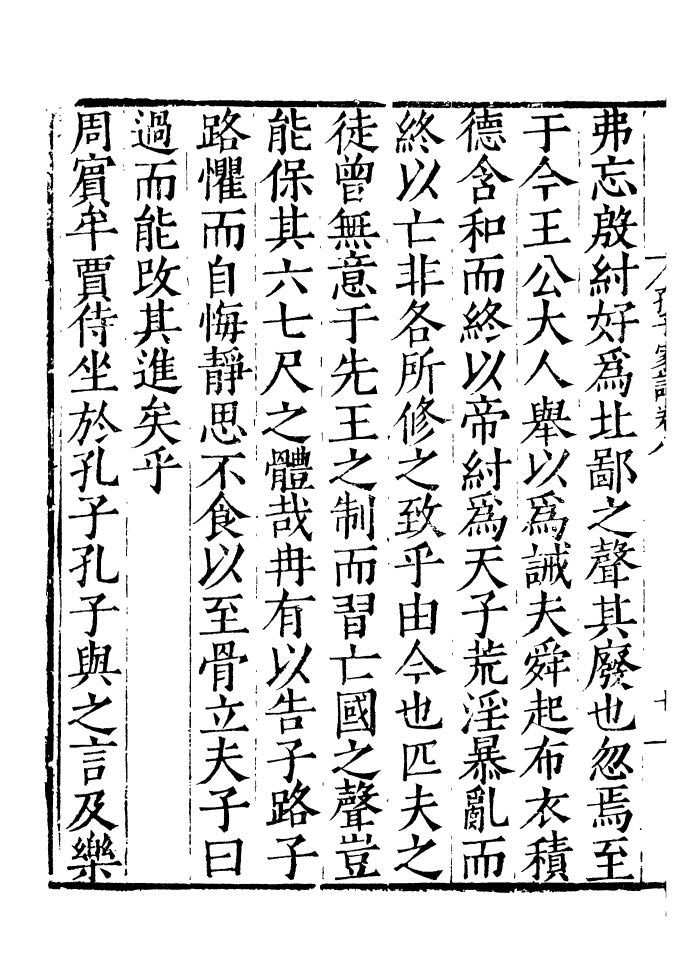 孔子家語卷八
十一
弗忘殷紂好爲北鄙之聲其廢也忽焉至
于今王公大人舉以爲誡夫舜起布衣積
德含和而終以帝紂爲天子荒淫暴亂而
終以亡非各所修之致乎由今也匹夫之
徒曾無意于先王之制而習亡國之聲豈
能保其六七尺之體哉冉有以告子路子
路懼而自悔靜思不食以至骨立夫子曰
過而能改其進矣乎
周賓牟賈侍坐於孔子孔子與之言及樂